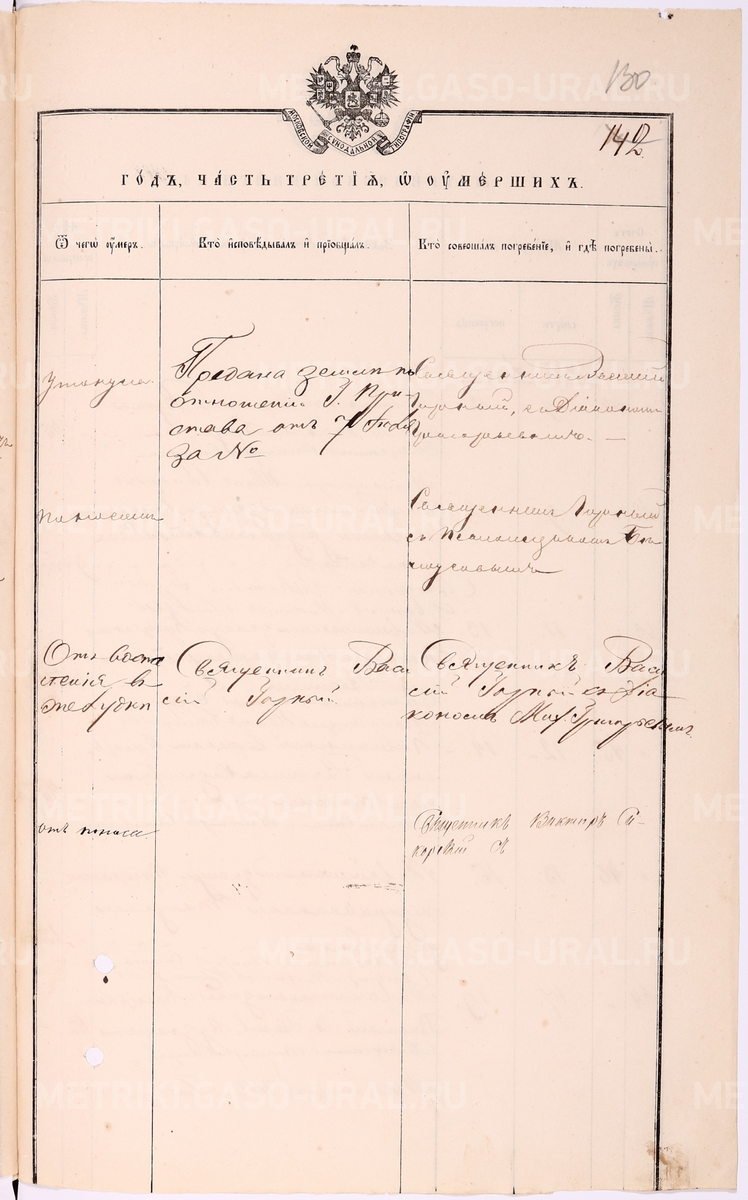 130
142
МОСКОВСКОЙ СѴНОДАЛЬНОЙ ТИПОГРАФІИ
ГО́ДЪ, ЧА́СТЬ ТРЕ́ТІѦ, Ѽ ОУМЕ́РШИХЪ.
Ѿ чегѡ̀ оу́меръ.
Кто̀ и҆сповѣ́дывалъ и҆ прїѡбща́лъ.
Кто̀ соверша́лъ погребе́нїе, и҆ гдѣ̀ погребены̀.
Утонула
Предана землѣ по
отношенію Г. При-
става отъ 7 Іюля
за №
Священникъ Василій
Горный, съ Діакономъ
Григорьевымъ. —
поносомъ
Священникъ Горный
съ Псаломщикомъ
Отъ воспа
ленія в
желудкѣ
Священникъ Васи
лій Горный
Священникъ Васи
лій Горный съ Діа
кономъ Мих. Григорьевымъ.
отъ поноса
Священникъ Викторъ
съ
METRIKI.GASO-URAL.RU